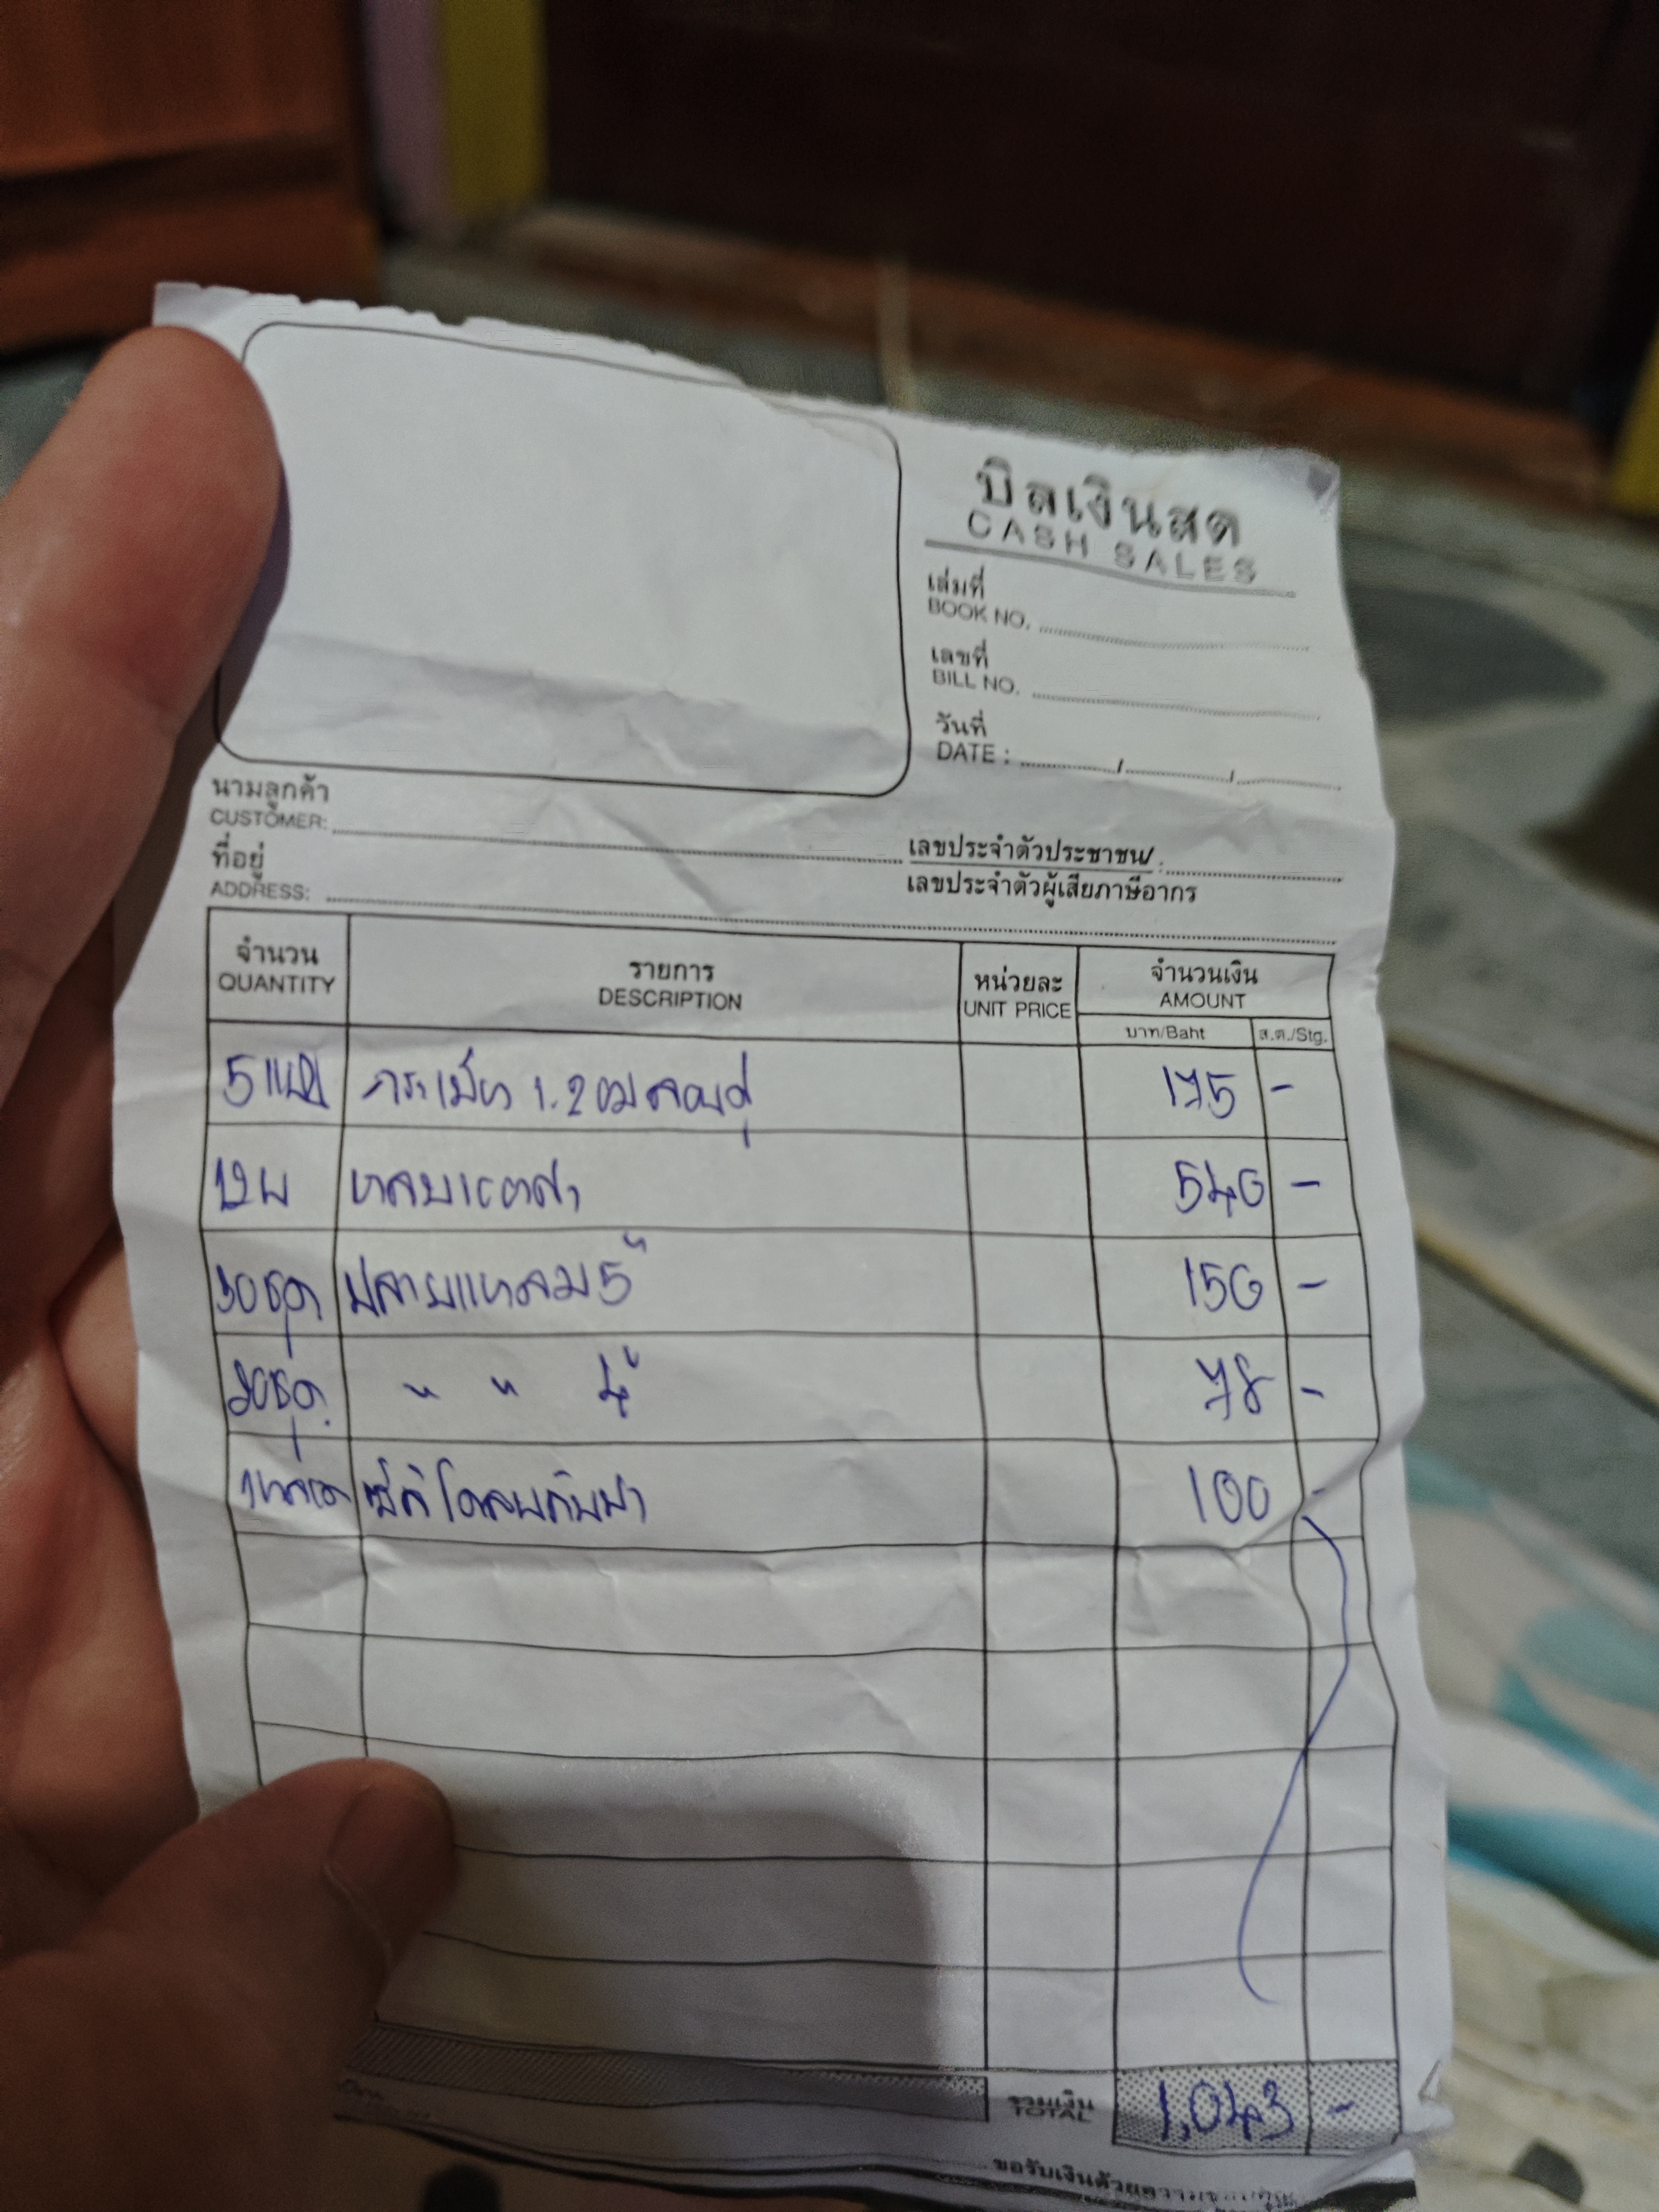 บิลเงินสด
CASH SALES
เล่มที่
BOOK NO.
เลขที่
BILL NO.
วันที่
DATE : / /
นามลูกค้า
CUSTOMER:
ที่อยู่
ADDRESS:
เลขประจำตัวประชาชน/
เลขประจำตัวผู้เสียภาษีอากร
จำนวน รายการ หน่วยละ จำนวนเงิน
QUANTITY DESCRIPTION UNIT PRICE AMOUNT
บาท/Baht ส.ต./Stg.
5 แผ่น กระเบื้อง 1.20ม ลอนคู่ 175 -
12 ผ 540 -
30 ชุด ปลายแหลม 5" 150 -
20 ชุด " " 4" 78 -
1 หลอด ซิลิโคลน 100 -
รวมเงิน
TOTAL 1,043 -
ขอรับเงินด้วยความขอบคุณ